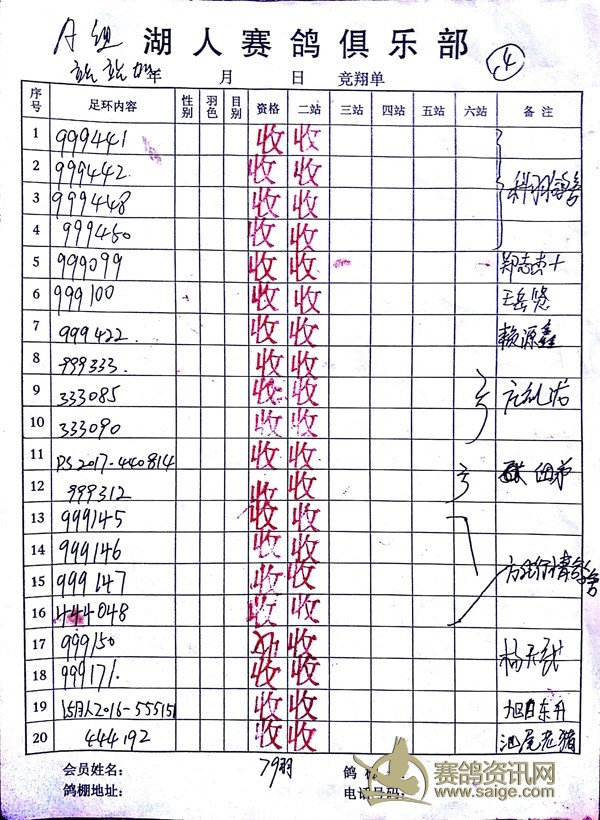 A组 湖人赛鸽俱乐部
年 月 日 竞翔单 4
序号 足环内容 性别 羽色 目别 资格 二站 三站 四站 五站 六站 备注
1 999441 收 收
2 999442 收 收
3 999448 收 收
4 999460 收 收
5 999099 收 收
6 999100 收 收 王岳
7 999422 收 收 赖源鑫
8 999333. 收 收
9 333085 收 收
10 333090 收 收
11 PS2017-440814 收 收
12 999312 收 收
13 999145 收 收
14 999146 收 收
15 999147 收 收
16 444048 收 收
17 999150 收 收
18 999171. 收 收
19 2016-555151 收 收 旭日东升
20 444192 收 收
会员姓名: 79羽 鸽
鸽棚地址: 电话号码:
赛鸽资讯网
www.saige.com